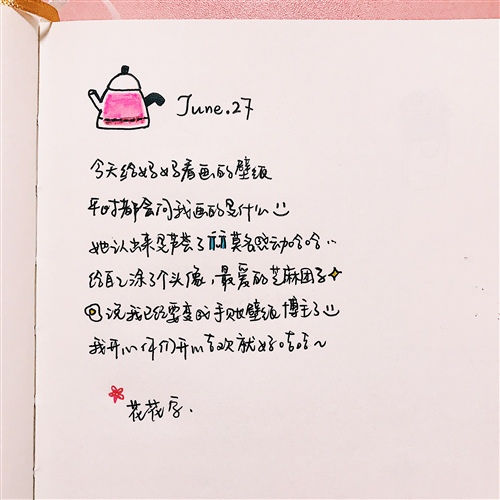 June.27
今天给好好看画的壁纸
平时都会问我画的是什么
她认出来是芦荟了 莫名感动哈哈
给自己涂了个头像，最爱的芝麻团子
说我已经要变成手账壁纸博主了
我开心你们开心喜欢就好哈哈～
花花字.